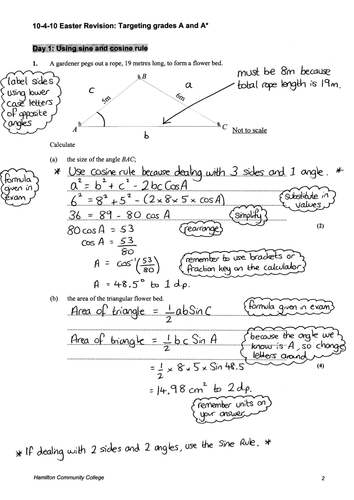 10-4-10 Easter Revision: Targeting grades A and A*
Day 1: Using sine and cosine rule
1. A gardener pegs out a rope, 19 metres long, to form a flower bed.
label sides
using lower
case letters
of opposite
angles
must be 8m because
total rope length is 19m.
B
c
a
5m
6m
A
C
b
Not to scale
Calculate
(a) the size of the angle BAC;
formula
given in
exam
* Use cosine rule because dealing with 3 sides and 1 angle. *
a² = b² + c² - 2bc CosA
6² = 8² + 5² - (2 x 8 x 5 x cosA)
substitute in
values
36 = 89 - 80 cos A
simplify
(2)
80 cos A = 53
rearrange
cos A = 53/80
A = cos⁻¹(53/80)
remember to use brackets or
fraction key on the calculator
A = 48.5° to 1 d.p.
(b) the area of the triangular flower bed.
Area of triangle = 1/2 ab Sin C
formula given in exam
Area of triangle = 1/2 bc Sin A
because the angle we
know is A, so change
letters around
= 1/2 x 8 x 5 x Sin 48.5
(4)
= 14.98 cm² to 2 d.p.
remember units on
your answer
* If dealing with 2 sides and 2 angles, use the Sine Rule. *
Hamilton Community College
2